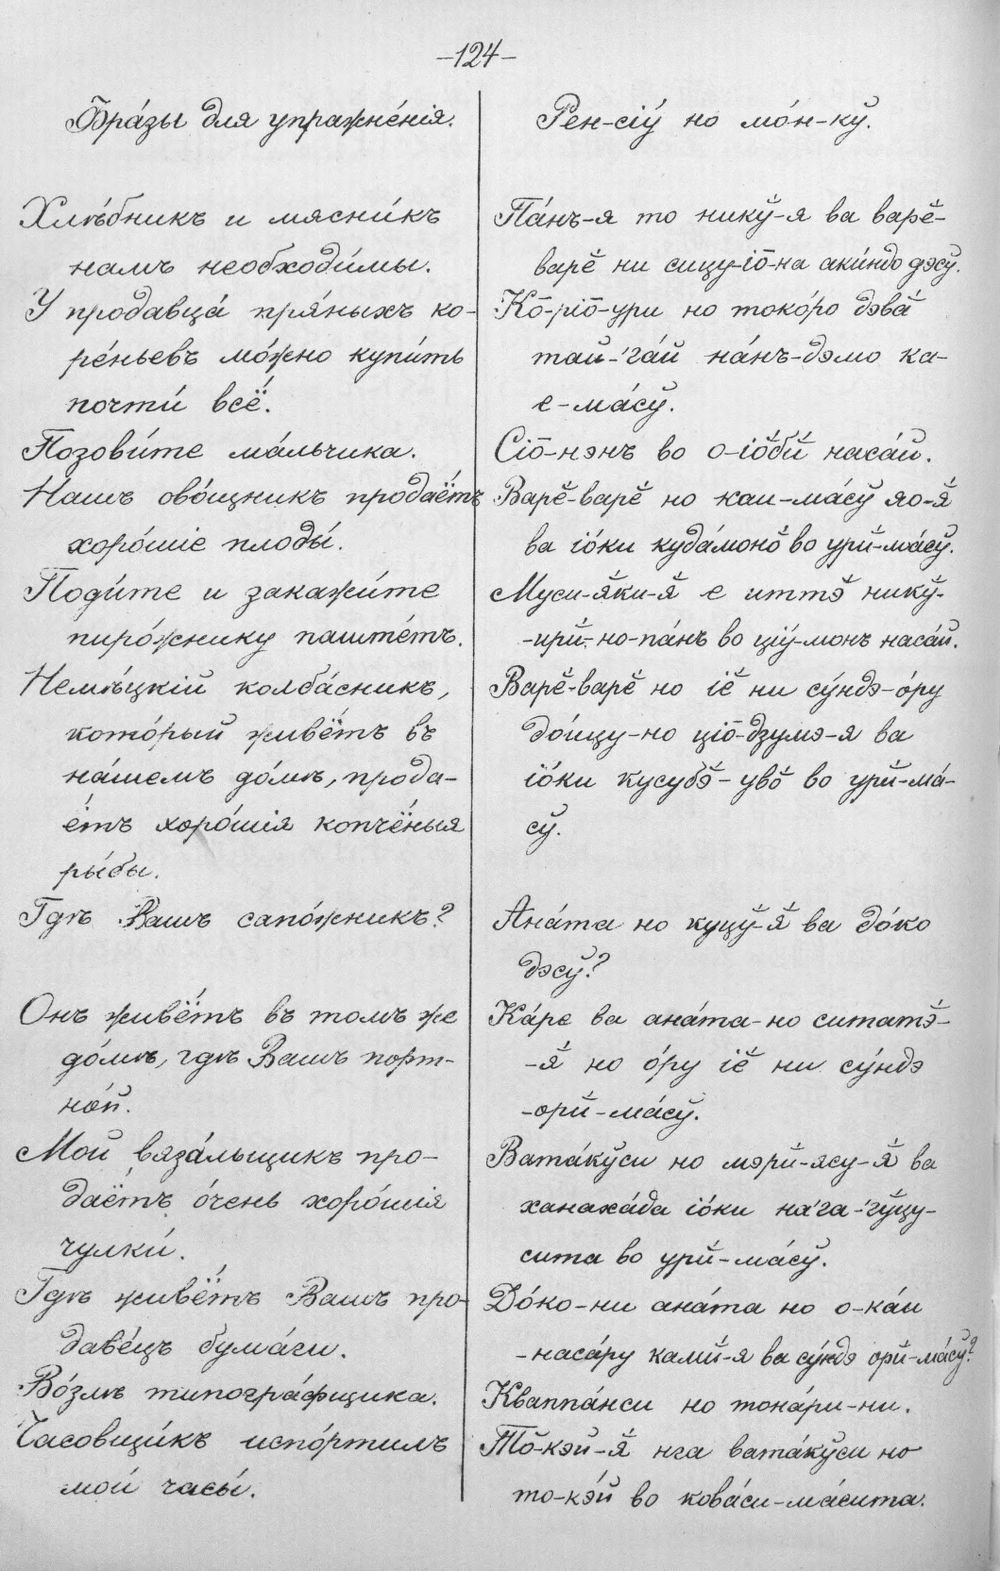 -124-
Фра́зы для упражне́нія.
Хлѣ́бникъ и мясни́къ
намъ необходи́мы.
У продавца́ пря́ныхъ ко-
ре́ньевъ мо́жно купи́ть
почти́ всё.
Позови́те ма́льчика.
Нашъ ово́щникъ продаётъ
хоро́шіе плоды́.
Поди́те и закажи́те
пиро́жнику паште́тъ.
Нѣме́цкій колба́сникъ,
кото́рый живётъ въ
на́шемъ до́мѣ, прода-
ётъ хоро́шія копчёныя
ры́бы.
Гдѣ Вашъ сапо́жникъ?
Онъ живётъ въ томъ же
до́мѣ, гдѣ Вашъ порт-
но́й.
Мой вяза́льщикъ про-
даётъ о́чень хоро́шія
чулки́.
Гдѣ живётъ Вашъ про-
даве́цъ бума́ги.
Во́злѣ типогра́фщика.
Часовщи́къ испо́ртилъ
мои́ часы́.
Рен-сіу́ но мо́н-кў.
Па́нъ-я то никў-я ва варӗ-
варӗ ни сицу-іо̄-на аки́ндо дэсў.
Ко̄-ріо̄-ури но токо́ро дэвӑ
тай-'га́й на́нъ-дэмо ка-
е-ма́сў.
Сіо̄-нэнъ во о-іо̆бй наса́й.
Варӗ-варӗ но каи-ма́сў яо-я̆
ва іо́ки куда́моно̆ во урй-ма́сў.
Муси-я̆ки-я̆ е иттэ̆ никў-
-ирй-но-па́нъ во ціу́-монъ наса́й.
Варӗ-варӗ но іӗ ни су́ндэ-о́ру
до́ицу-но ціо̄-дзумэ-я ва
іо́ки кусубэ̆-уво̆ во урй-ма́-
сў.
Ана́та но куцў-я̆ ва до́ко
дэсў?
Ка́ре ва ана́та-но ситатэ̆-
-я̆ но о́ру іӗ ни су́ндэ
-орй-ма́сў.
Вата́кўси но мэрй-ясу-я̆ ва
ханаха́да іо́ки на́'га-'гўцу-
сита во урй-ма́сў.
До́ко-ни ана́та но о-ка́и
-наса́ру камй-я ва су́ндэ орй-ма́сў?
Кваппа́нси но тона́ри-ни.
То̄-кэй-я̆ нга вата́кўси но
то-кэ́й во кова́си-ма́сита.